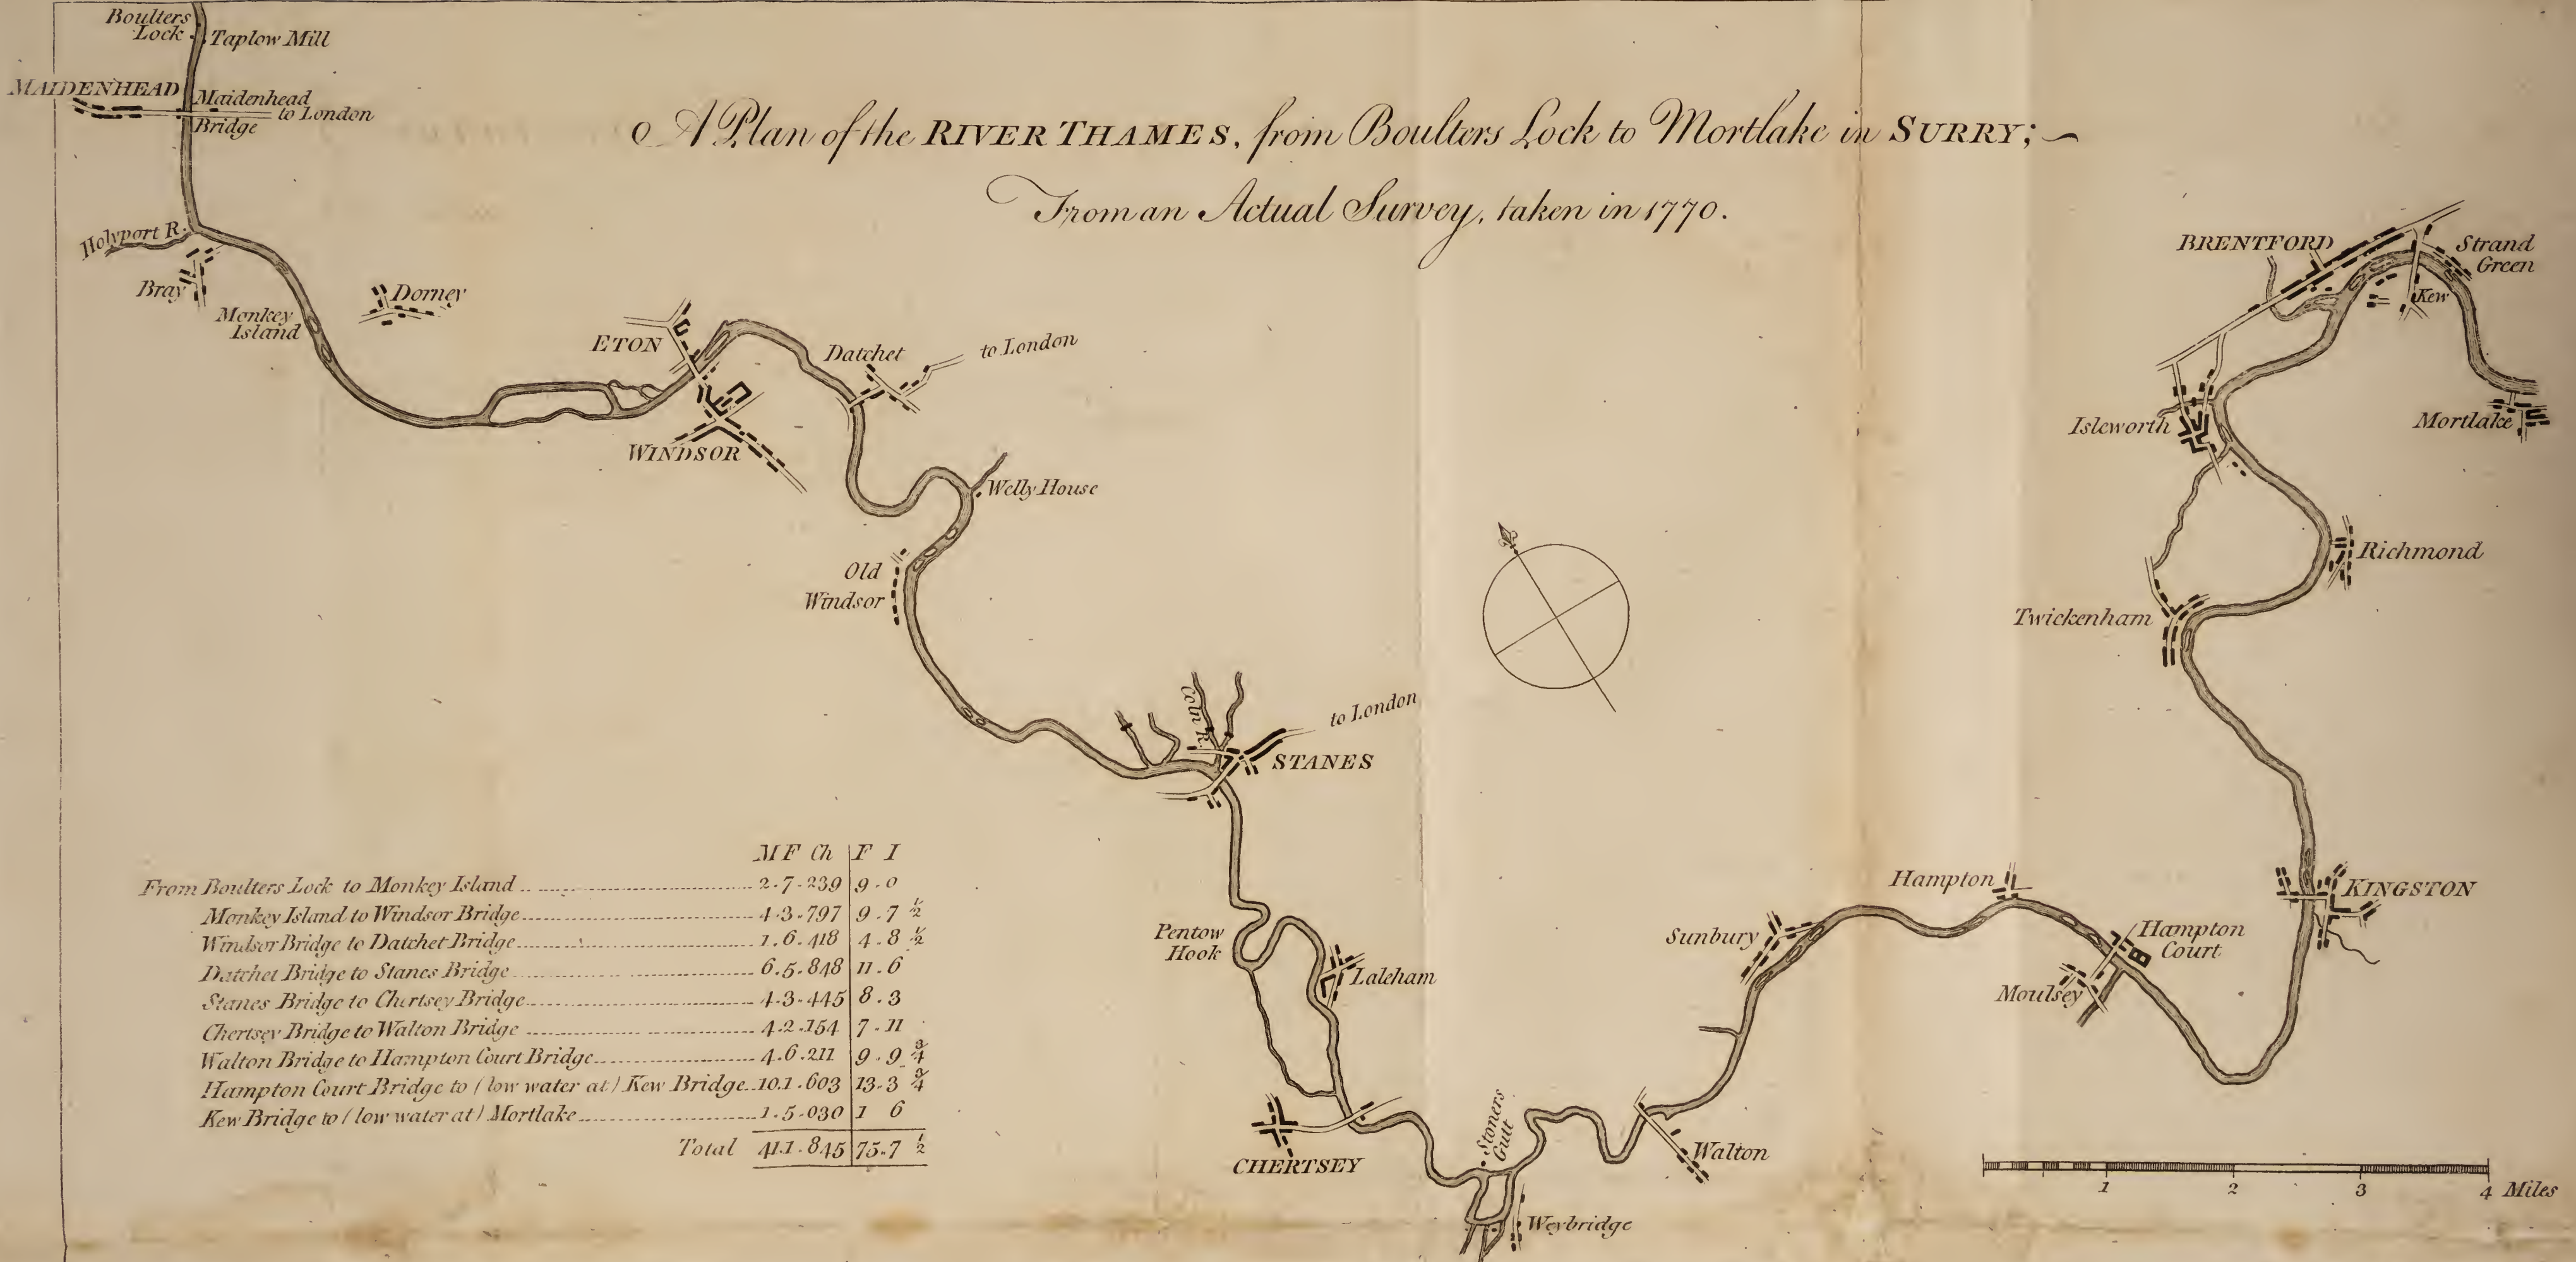 A Plan of the RIVER THAMES, from Boulters Lock to Mortlake in SURRY;
From an Actual Survey, taken in 1770.
Boulters
Lock
Taplow Mill
MAIDENHEAD
Maidenhead
Bridge
to London
Holyport R.
Bray
Monkey
Island
Dorney
ETON
WINDSOR
Datchet
to London
Welly House
Old
Windsor
Coln R.
to London
STANES
Pentow
Hook
Laleham
CHERTSEY
Stoners
Gutt
Weybridge
Walton
Sunbury
Hampton
Hampton
Court
Moulsey
KINGSTON
Twickenham
Richmond
Isleworth
BRENTFORD
Strand
Green
Kew
Mortlake
M F Ch F I
From Boulters Lock to Monkey Island 2.7.239 9.0
Monkey Island to Windsor Bridge 4.3.797 9.7 1/2
Windsor Bridge to Datchet Bridge 1.6.418 4.8 1/2
Datchet Bridge to Stanes Bridge 6.5.848 11.6
Stanes Bridge to Chertsey Bridge 4.3.445 8.3
Chertsey Bridge to Walton Bridge 4.2.154 7.11
Walton Bridge to Hampton Court Bridge 4.6.211 9.9 3/4
Hampton Court Bridge to (low water at) Kew Bridge 10.1.603 13.3 3/4
Kew Bridge to (low water at) Mortlake 1.5.030 1 6
Total 41.1.845 75.7 1/2
1 2 3 4 Miles